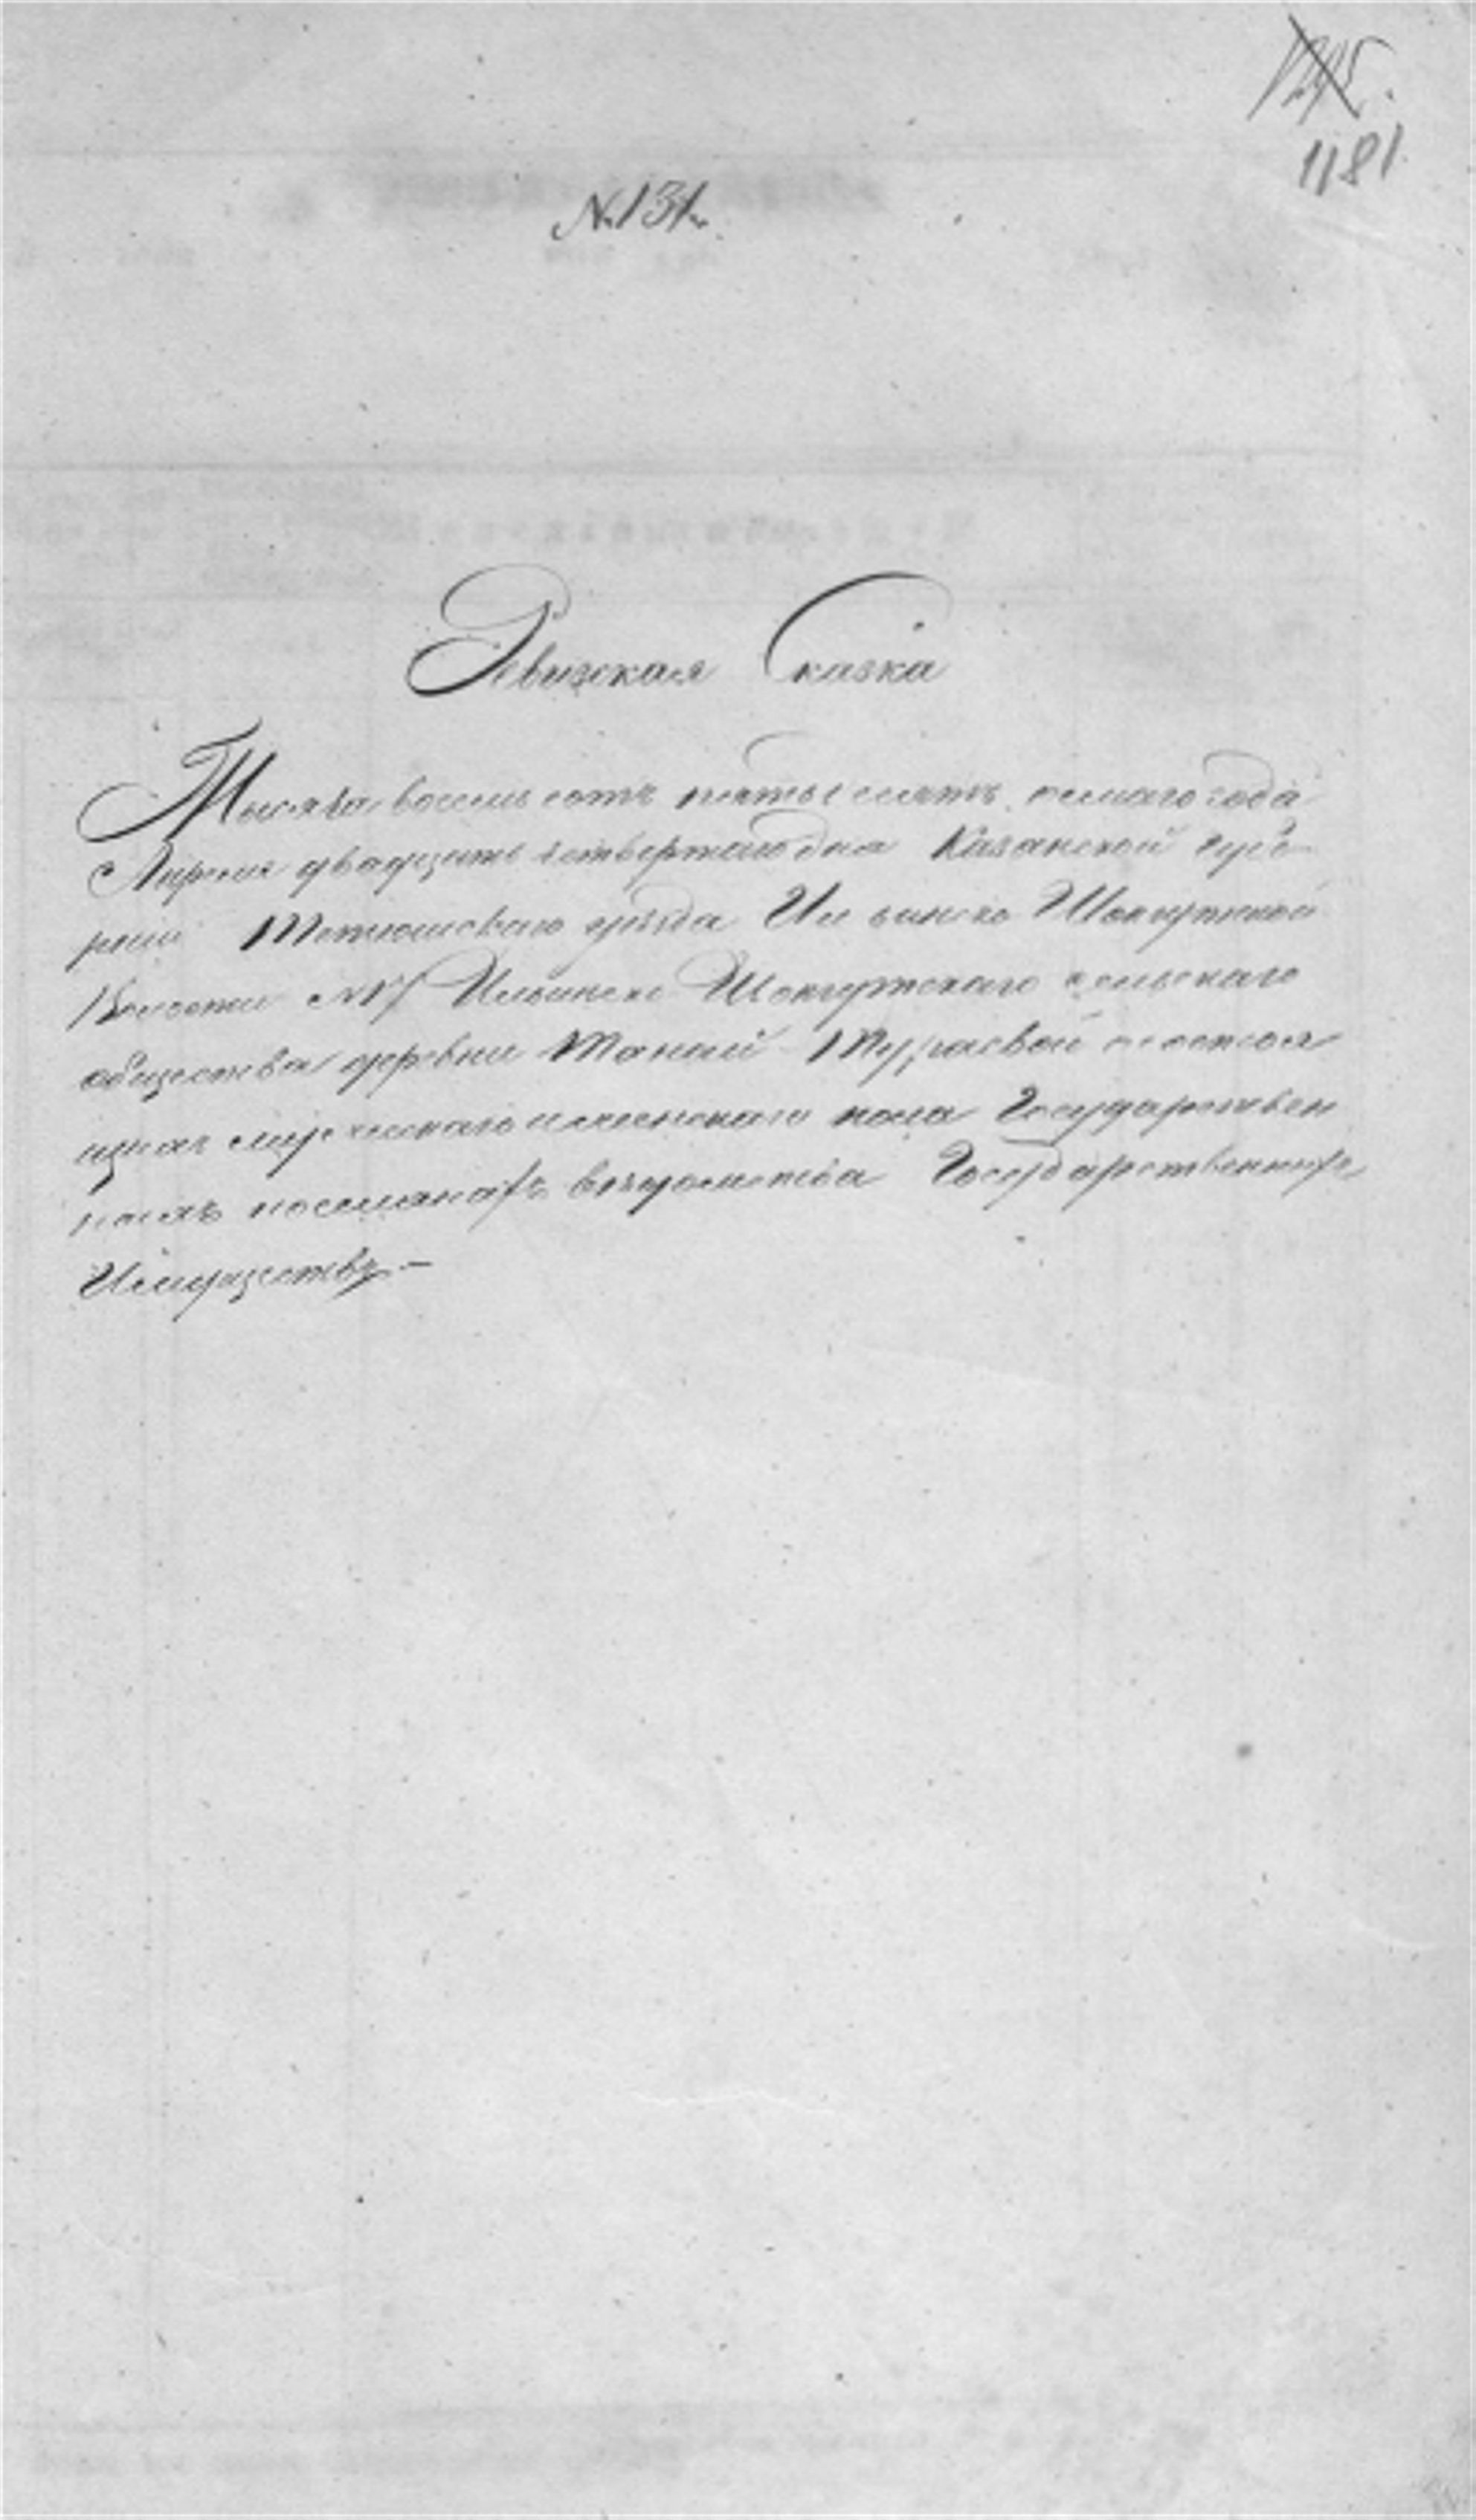 1181
№ 131.
Ревизская Сказка
Тысяча восемь сотъ пятьдесятъ осьмаго года
Апреля двадцать четвертаго дня Казанской губе-
рніи Тетюшскаго уѣзда Ильинско Шонгутской
Волости № 1 Ильинско Шонгутскаго сельскаго
общества деревни Тоншй о состоя
щихъ мужескаго и женскаго пола Государствен
ныхъ поселянахъ вѣдомства Государственныхъ
Имуществъ. —